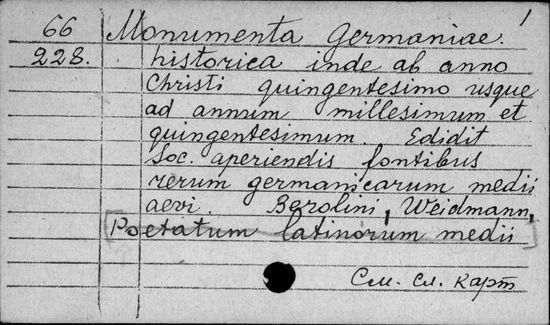 1
66 Monumenta Germaniae
228. historica inde ab anno
Christi quingentesimo usque
ad annum millesimum et
quingentesimum. Edidit
Soc. aperiendis fontibus
rerum germanicarum medii
aevi. Berolini, Weidmann,
[Poetatum latinorum medii
См. сл. карт